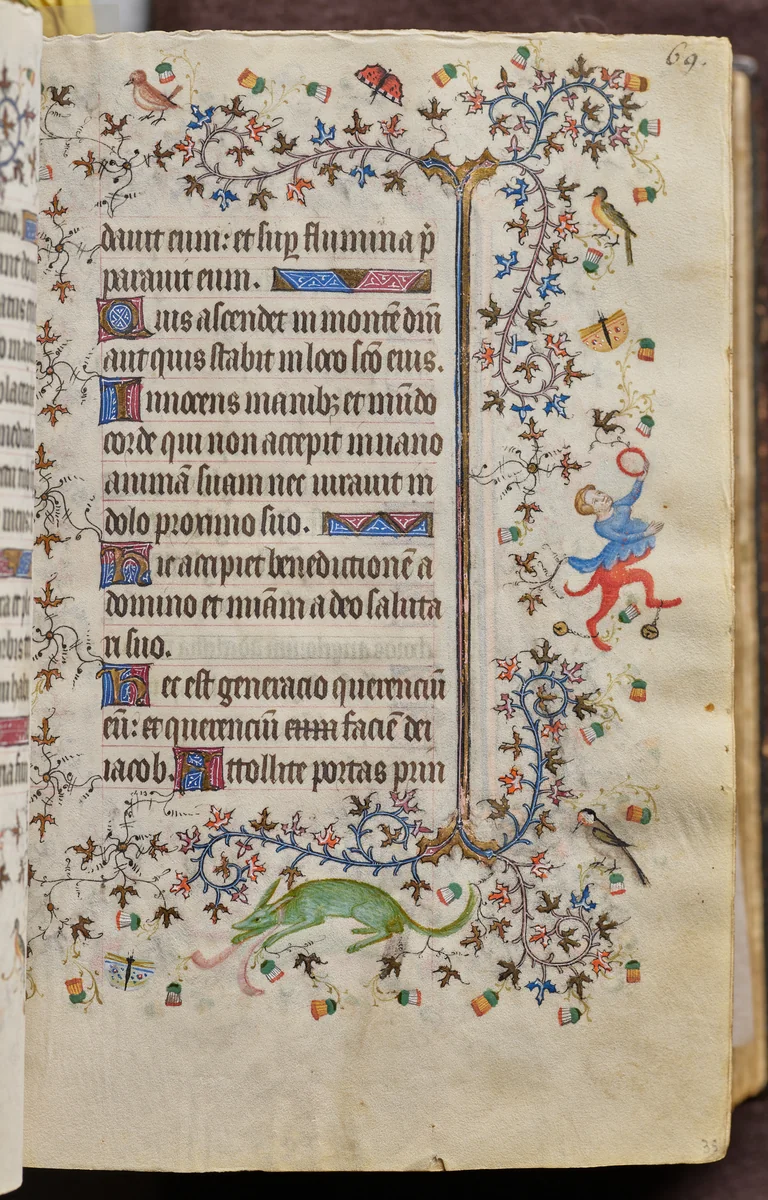 69.
dauit eum: et sup̱ flumina p̄
parauit eum.
Quis ascendet in montē dn̄i
aut quis stabit in loco sc̄o eius.
Innocens manibꝫ et mūdo
corde qui non accepit in uano
animā suam nec iurauit in
dolo proximo suo.
Hic accipiet benedictionē a
domino et mīam a deo saluta
ri suo.
Hec est generacio querenciū
eū: et querenciū eum faciē dei
iacob. Attollite portas prin